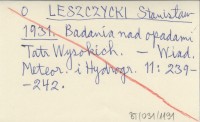 O LESZCZYCKI Stanisław
1931. Badania nad opadami
Tatr Wysokich. – Wiad.
Meteor. i Hydrogr. 11: 239-
-242.